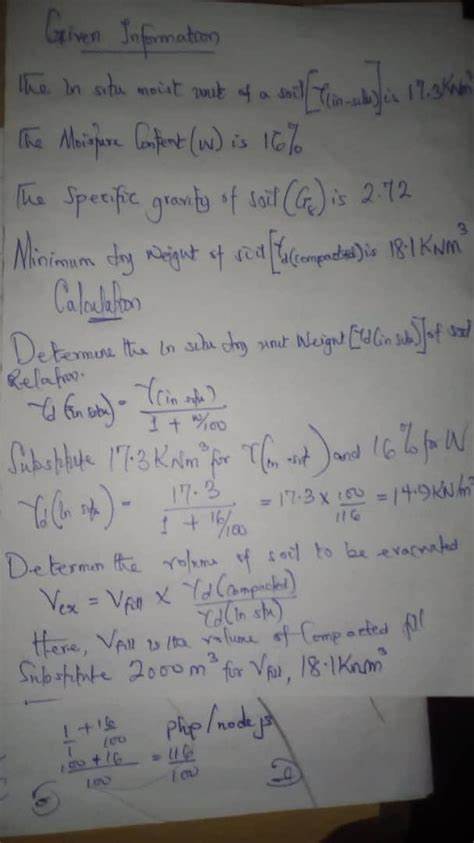 Given Information
The In situ moist unit of a soil [γ(in-situ)] is 17.3KNm³
The Moisture Content (W) is 16%
The Specific gravity of soil (Gs) is 2.72
Minimum dry weight of soil [γd(compacted) is 18.1KNm³
Calculation
Determine the In situ dry unit Weight [γd(in situ)] of soil
Relation.
γd (in situ) = γ(in situ) / 1 + w/100
Substitute 17.3KNm³ for γ(in-sit) and 16% for W
γd(in situ) = 17.3 / 1 + 16/100 = 17.3 x 100/116 = 14.9KN/m³
Determin the volume of soil to be excavated
Vex = Vfill x γd(compacted) / γd(in situ)
Here, Vfill is the volume of Compacted fill
Substitute 2000m³ for Vfill, 18.1Knm³
1/1 + 16/100 php/nodejs
100+16/100 = 116/100